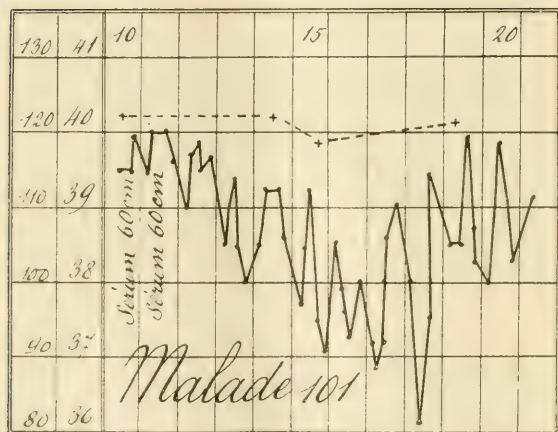 10 15 20
130 41
120 40
110 39
100 38
90 37
80 36
Sérum 60 cm
Sérum 60 cm
Malade 101